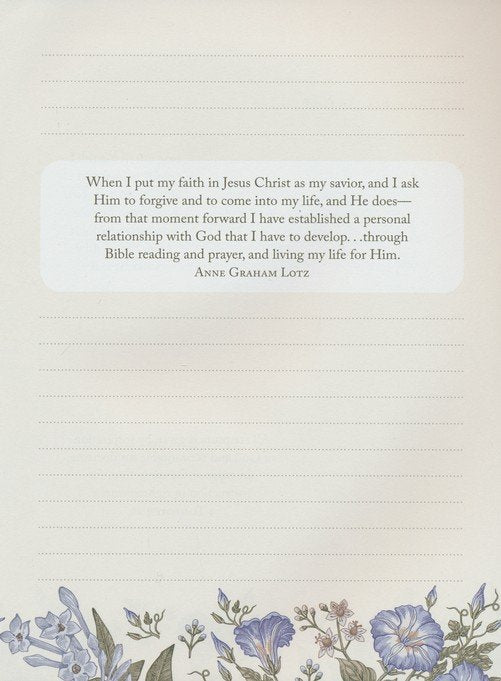 When I put my faith in Jesus Christ as my savior, and I ask
Him to forgive and to come into my life, and He does—
from that moment forward I have established a personal
relationship with God that I have to develop. . .through
Bible reading and prayer, and living my life for Him.
Anne Graham Lotz